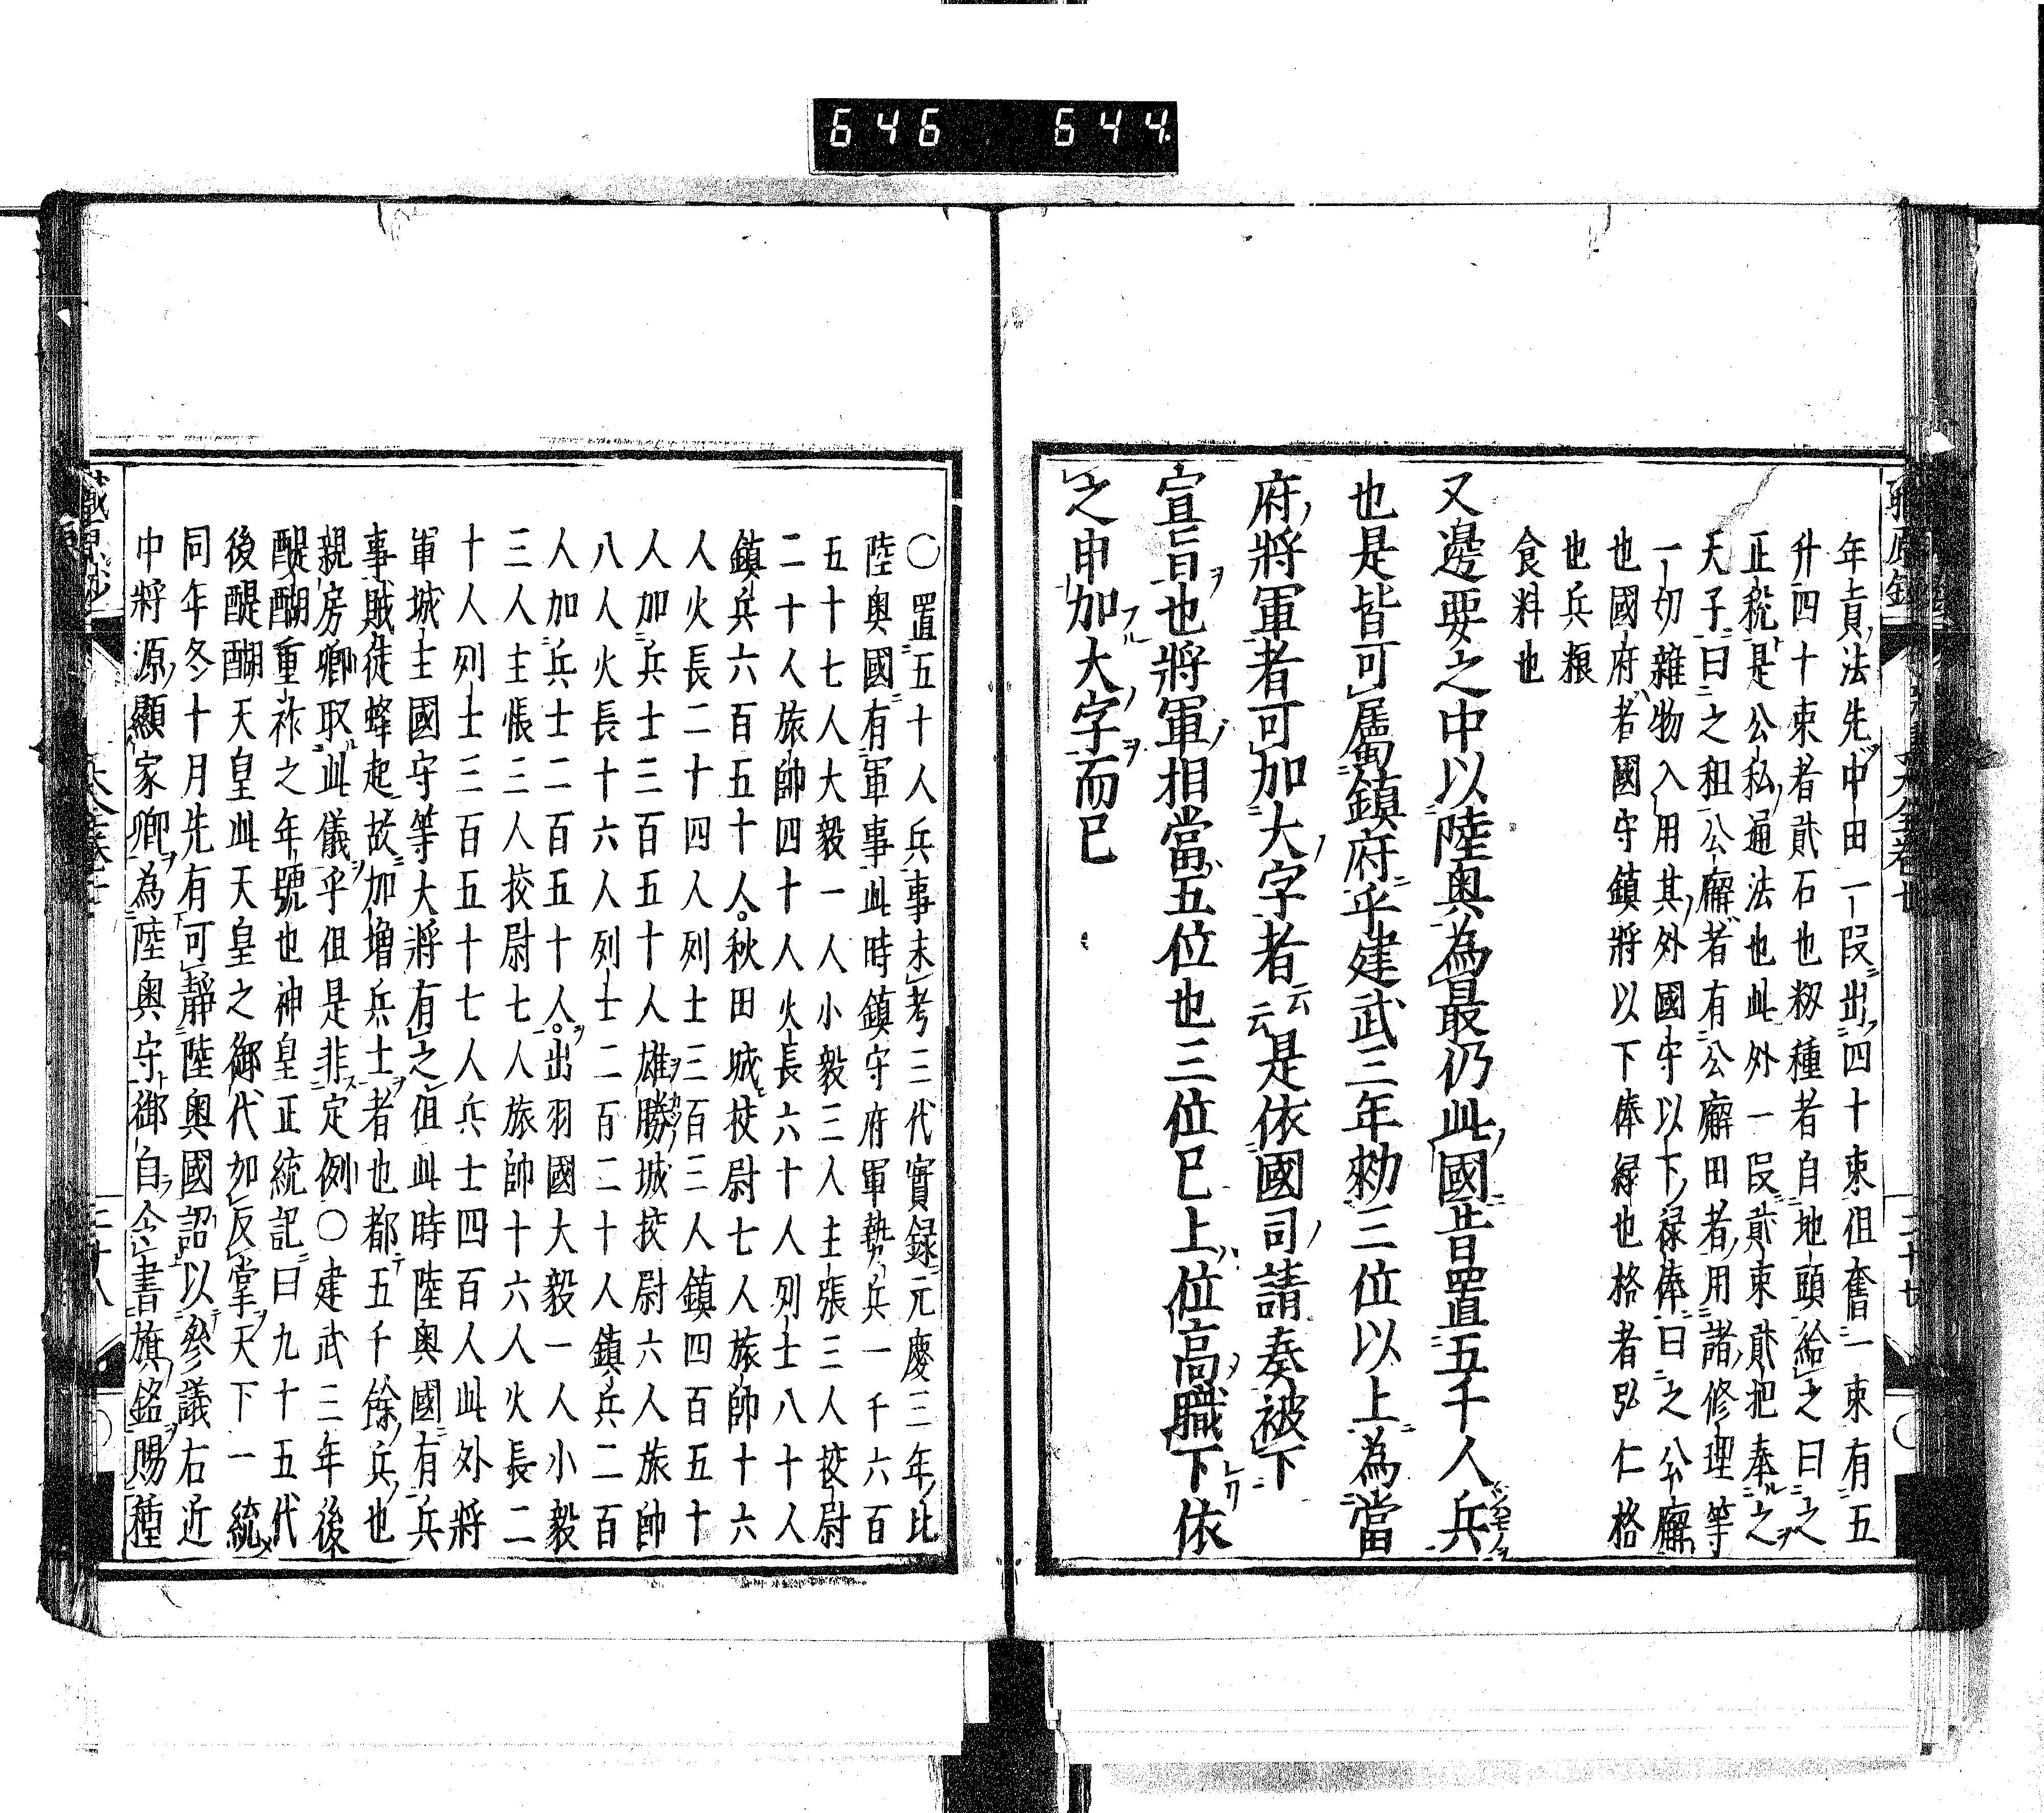 646 644
年貢法先中田一段出四十束但奮一束有五
升四十束者貳石也籾種者自地頭給之曰之
正税是公私通法也此外一段貳束貳把奉之
天子曰之租公廨者有公廨田者用諸修理等
一切雜物入用其外國守以下禄俸曰之公廨
也國府者國守鎮將以下俸緑也格者弘仁格
也兵粮
食料也
又邊要之中以陸奥為最仍此國昔置五千人兵
也是皆可属鎮府乎建武三年勑三位以上為當
府將軍者可加大字者云云是依國司請奏被下
宣旨也將軍相當五位也三位已上位高職下依
之申加大字而已
○置五十人兵事未考三代實録元慶三年比
陸奥國有軍事此時鎮守府軍勢兵一千六百
五十七人大毅一人小毅三人主張三人挍尉
二十人旅帥四十人火長六十人列士八十人
鎮兵六百五十人秋田城挍尉七人旅帥十六
人火長二十四人列士三百三人鎮四百五十
人加兵士三百五十人雄勝城挍尉六人旅帥
八人火長十六人列士二百二十人鎮兵二百
人加兵士二百五十人出羽國大毅一人小毅
三人主悵三人挍尉七人旅帥十六人火長二
十人列士三百五十七人兵士四百人此外將
軍城主國守等大將有之但此時陸奥國有兵
事賊徒蜂起故加増兵士者也都五千餘兵也
親房卿取此儀乎但是非定例○建武三年後
醍醐重祚之年號也神皇正統記曰九十五代
後醍醐天皇此天皇之御代如反掌天下一統
同年冬十月先有可靜陸奥國詔以參議右近
中將源顯家卿為陸奥守御自令書旗銘賜種
二十八